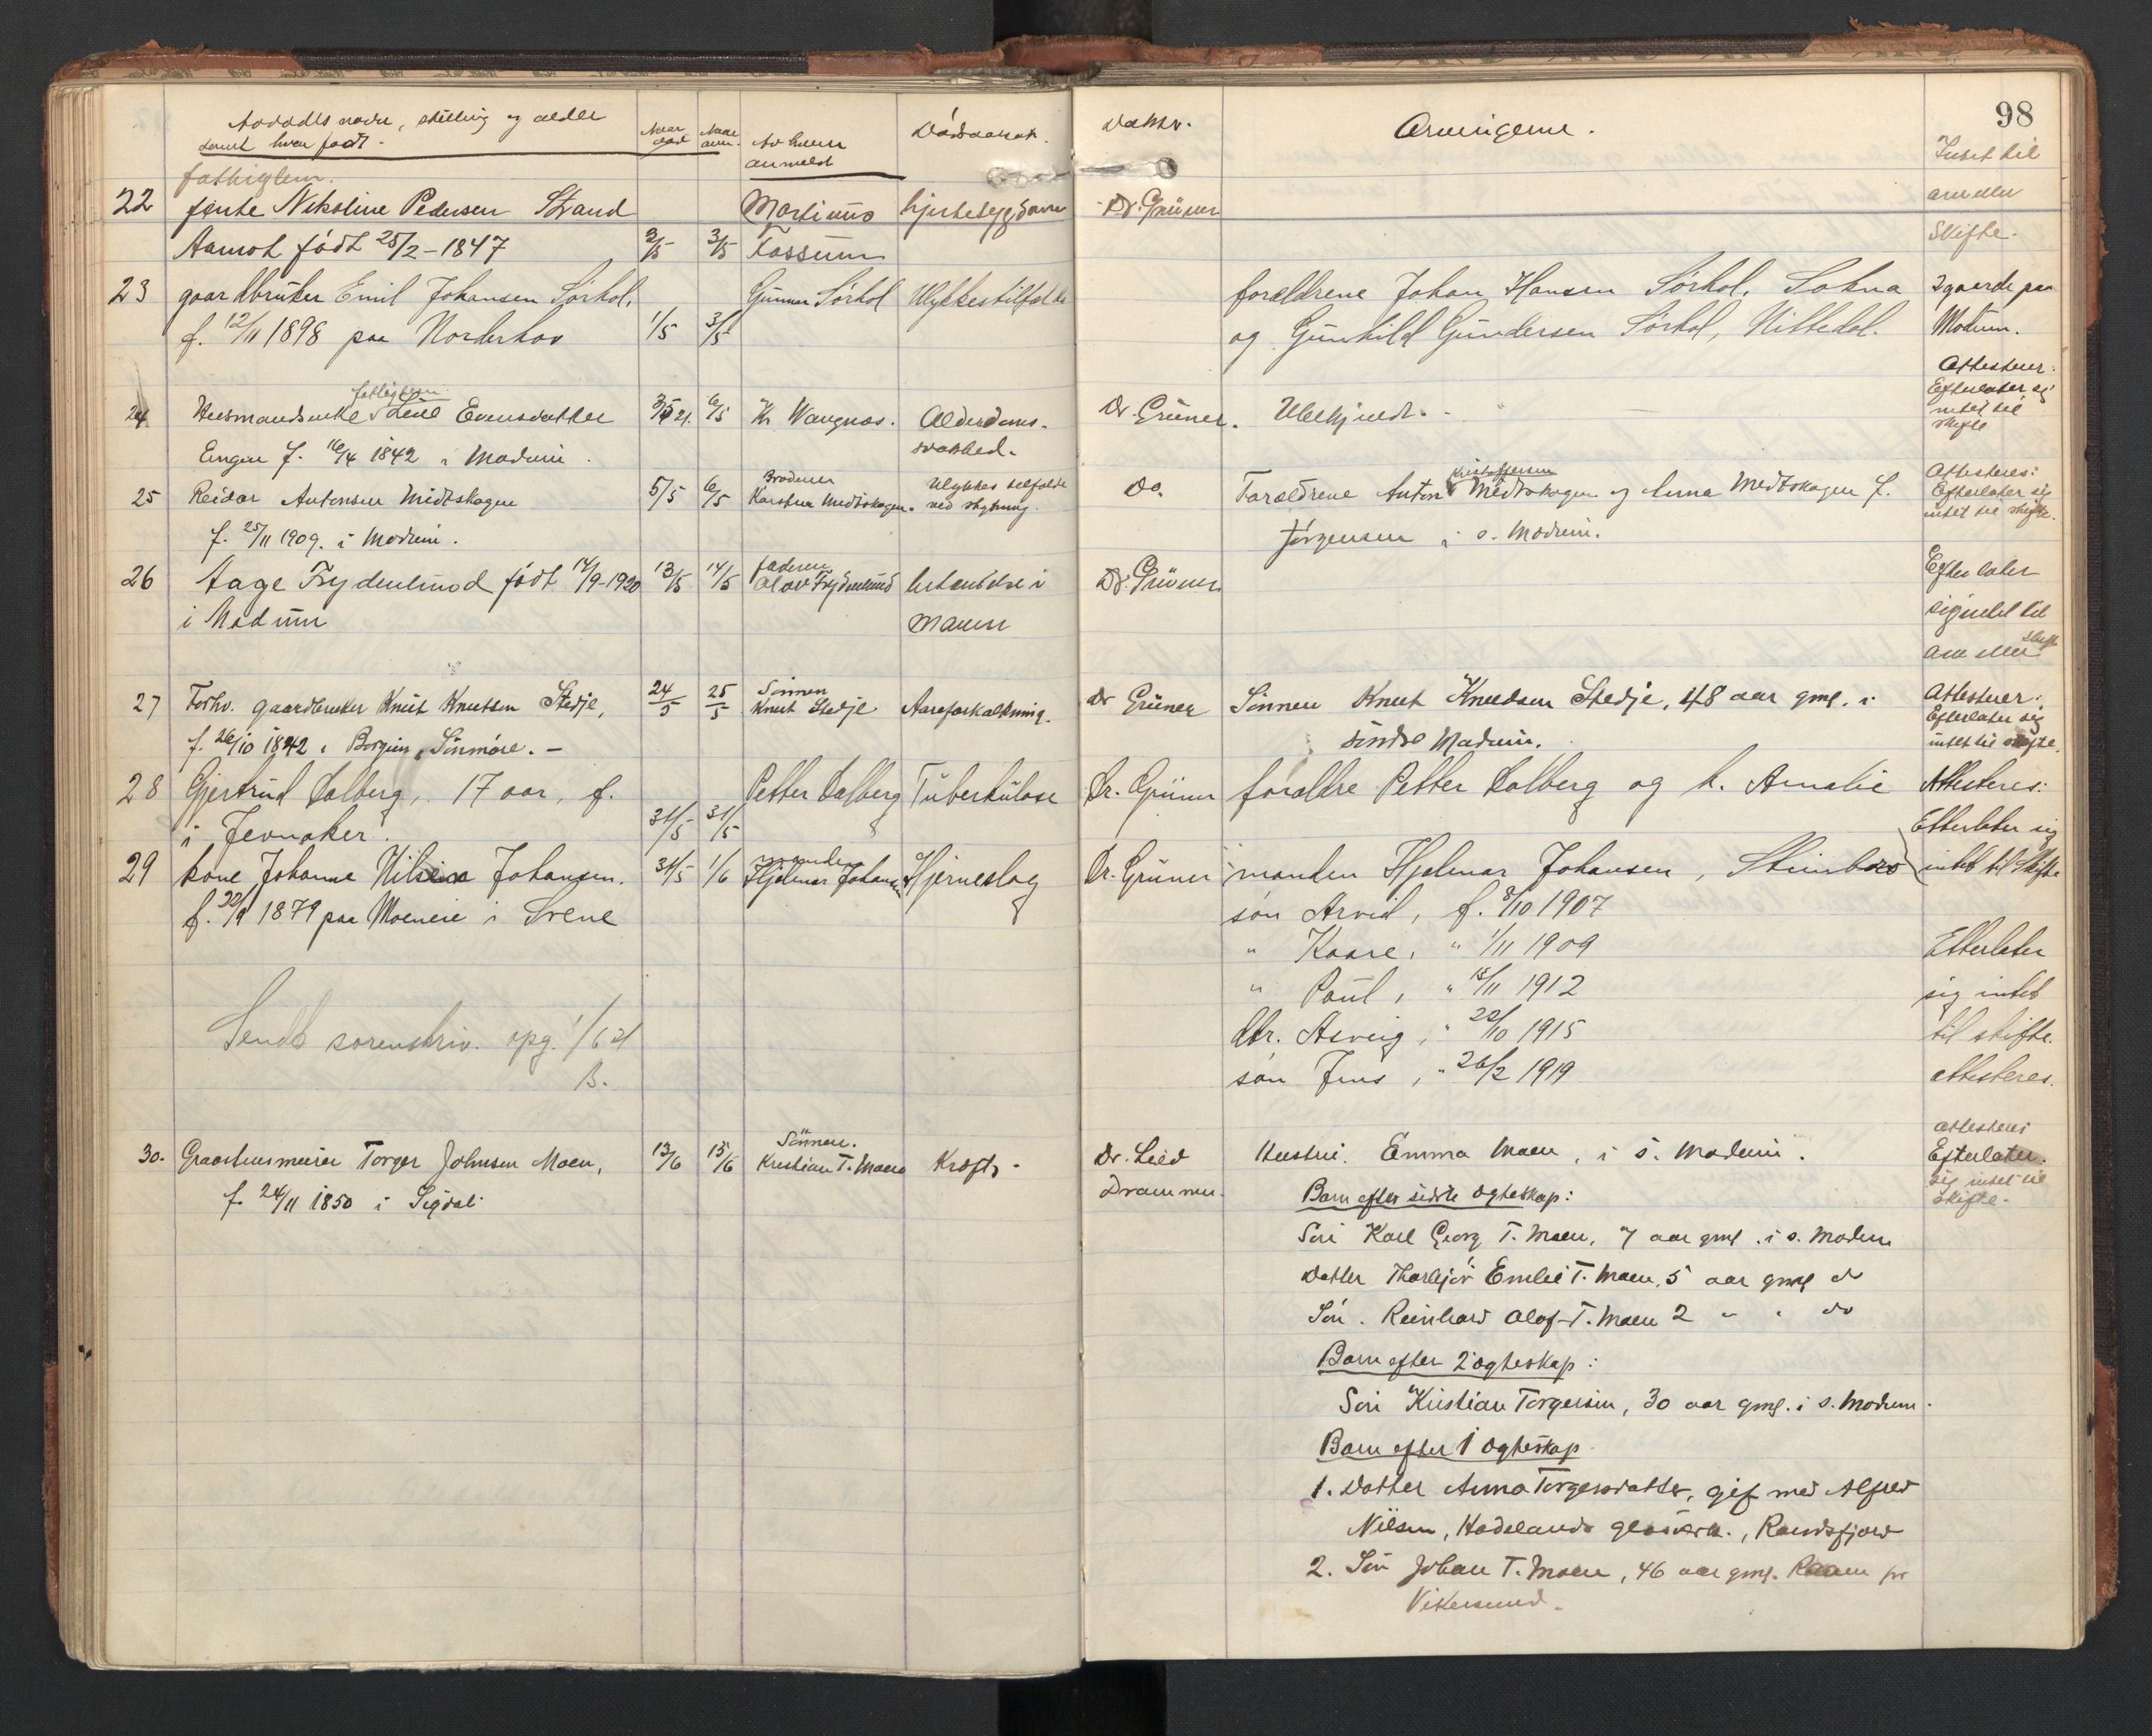 98
Avdødes navn, stilling og alder
samt hvor født.
Naar død
Naar anm.
Av hvem anmeldt
Dødsaarsak
Doktor.
Arvingerne.
22 fattiglem.
jente Nikoline Pedersen Strand
Aamot født 25/2-1847
3/5 3/5
Martinus Fossum
hjertesygdom
Dr. Grüner
Intet til
arv eller
Skifte.
23 gaardbruker Emil Johansen Sørhol,
f. 12/11 1898 paa Norderhov
1/5 3/5
Gunnar Sørhol
Ulykkestilfælde
forældrene Johan Hansen Sørhol, Sokna
og Gunhild Gundersen Sørhol, Nittedal.
2 gaarde paa
Modum.
24. Huusmandsenke fattiglem Lene Evensdatter
Engen f. 16/4 1842 i Modum.
3/5 21. 6/5
Kr. Wangnæs.
Alderdoms-
svakhed.
Dr. Grüner.
Ubekjendt.
Attesterer:
Efterlater sig
intet til
skifte
25 Reidar Antonsen Midtskogen
f. 25/11 1909. i Modum.
5/5 6/5
Broderen
Karsten Midtskogen.
Ulykkes tilfælde
ved skytning.
Do.
Forældrene Anton Kristoffersen Midtskogen og Anna Midtskogen f.
Jørgensen i s. Modum.
Attesteres:
Efterlater sig
intet til skifte.
26 Aage Frydenlund født 14/9-1920
i Modum
13/5 14/5
faderen
Olav Frydenlund
betændelse i
maven
Dr. Grüner
Efterlater
sig intet til
arv eller skifte
27 Forhv. gaardbruker Knut Knutsen Stedje,
f. 26/10 1842 i Borgund, Sönmöre. -
24/5 25/5
Sönnen
Knut Stedje
Aareforkalkning.
Dr Grüner
Sönnen Knut Knudsen Stedje, 48 aar gml. i
söndre Modum.
Attesterer:
Efterlater sig
intet til skifte.
28 Gjertrud Dalberg, 17 aar, f.
i Jevnaker.
31/5 31/5
Petter Dalberg
Tuberkulose
Dr. Grüner
forældre Petter Dalberg og h. Amalie
Attesteres:
Etterlater sig
intet til Skifte
29 kone Johanne Nilsine Johansen.
f. 22/9 1879 paa Moeneie i Svene
31/5 1/6
manden
Hjalmar Johansen
Hjerneslag
Dr. Grüner
manden Hjalmar Johansen, Stenbers
søn Arvid, f. 8/10 1907
" Kaare, " 1/11 1909
" Paul, " 15/11 1912
dtr. Asveig, " 22/10 1915
søn Jens, " 26/2 1919
Etterlater
sig intet
til skifte.
attesteres.
Sendt sorenskriv. opg. 1/6 21
B.
30. Graastensmurer Torger Johnsen Moen,
f. 24/11 1850 i Sigdal
13/6 15/6
Sönnen.
Kristian T. Moen
Kræft.
Dr. Lied
Drammen.
Hustru. Emma Moen, i s. Modum.
Barn efter sidste ægteskap:
Sön Karl Georg T. Moen, 7 aar gml. i s. Modum
Datter Thorbjör Emlie T. Moen, 5 aar gml do
Sön. Reinhard Olaf T. Moen 2 " " do
Barn efter 2 ægteskap:
Sön Kristian Torgersen, 30 aar gml. i s. Modum.
Barn efter 1 ægteskap
1. Datter Anna Torgersdatter, gift med Alfred
Nilsen, Hadelands glasverk., Randsfjord
2. Sön Johan T. Moen, 46 aar gml. pr
Vikersund.
attesteres
Efterlater.
sig intet til
skifte.